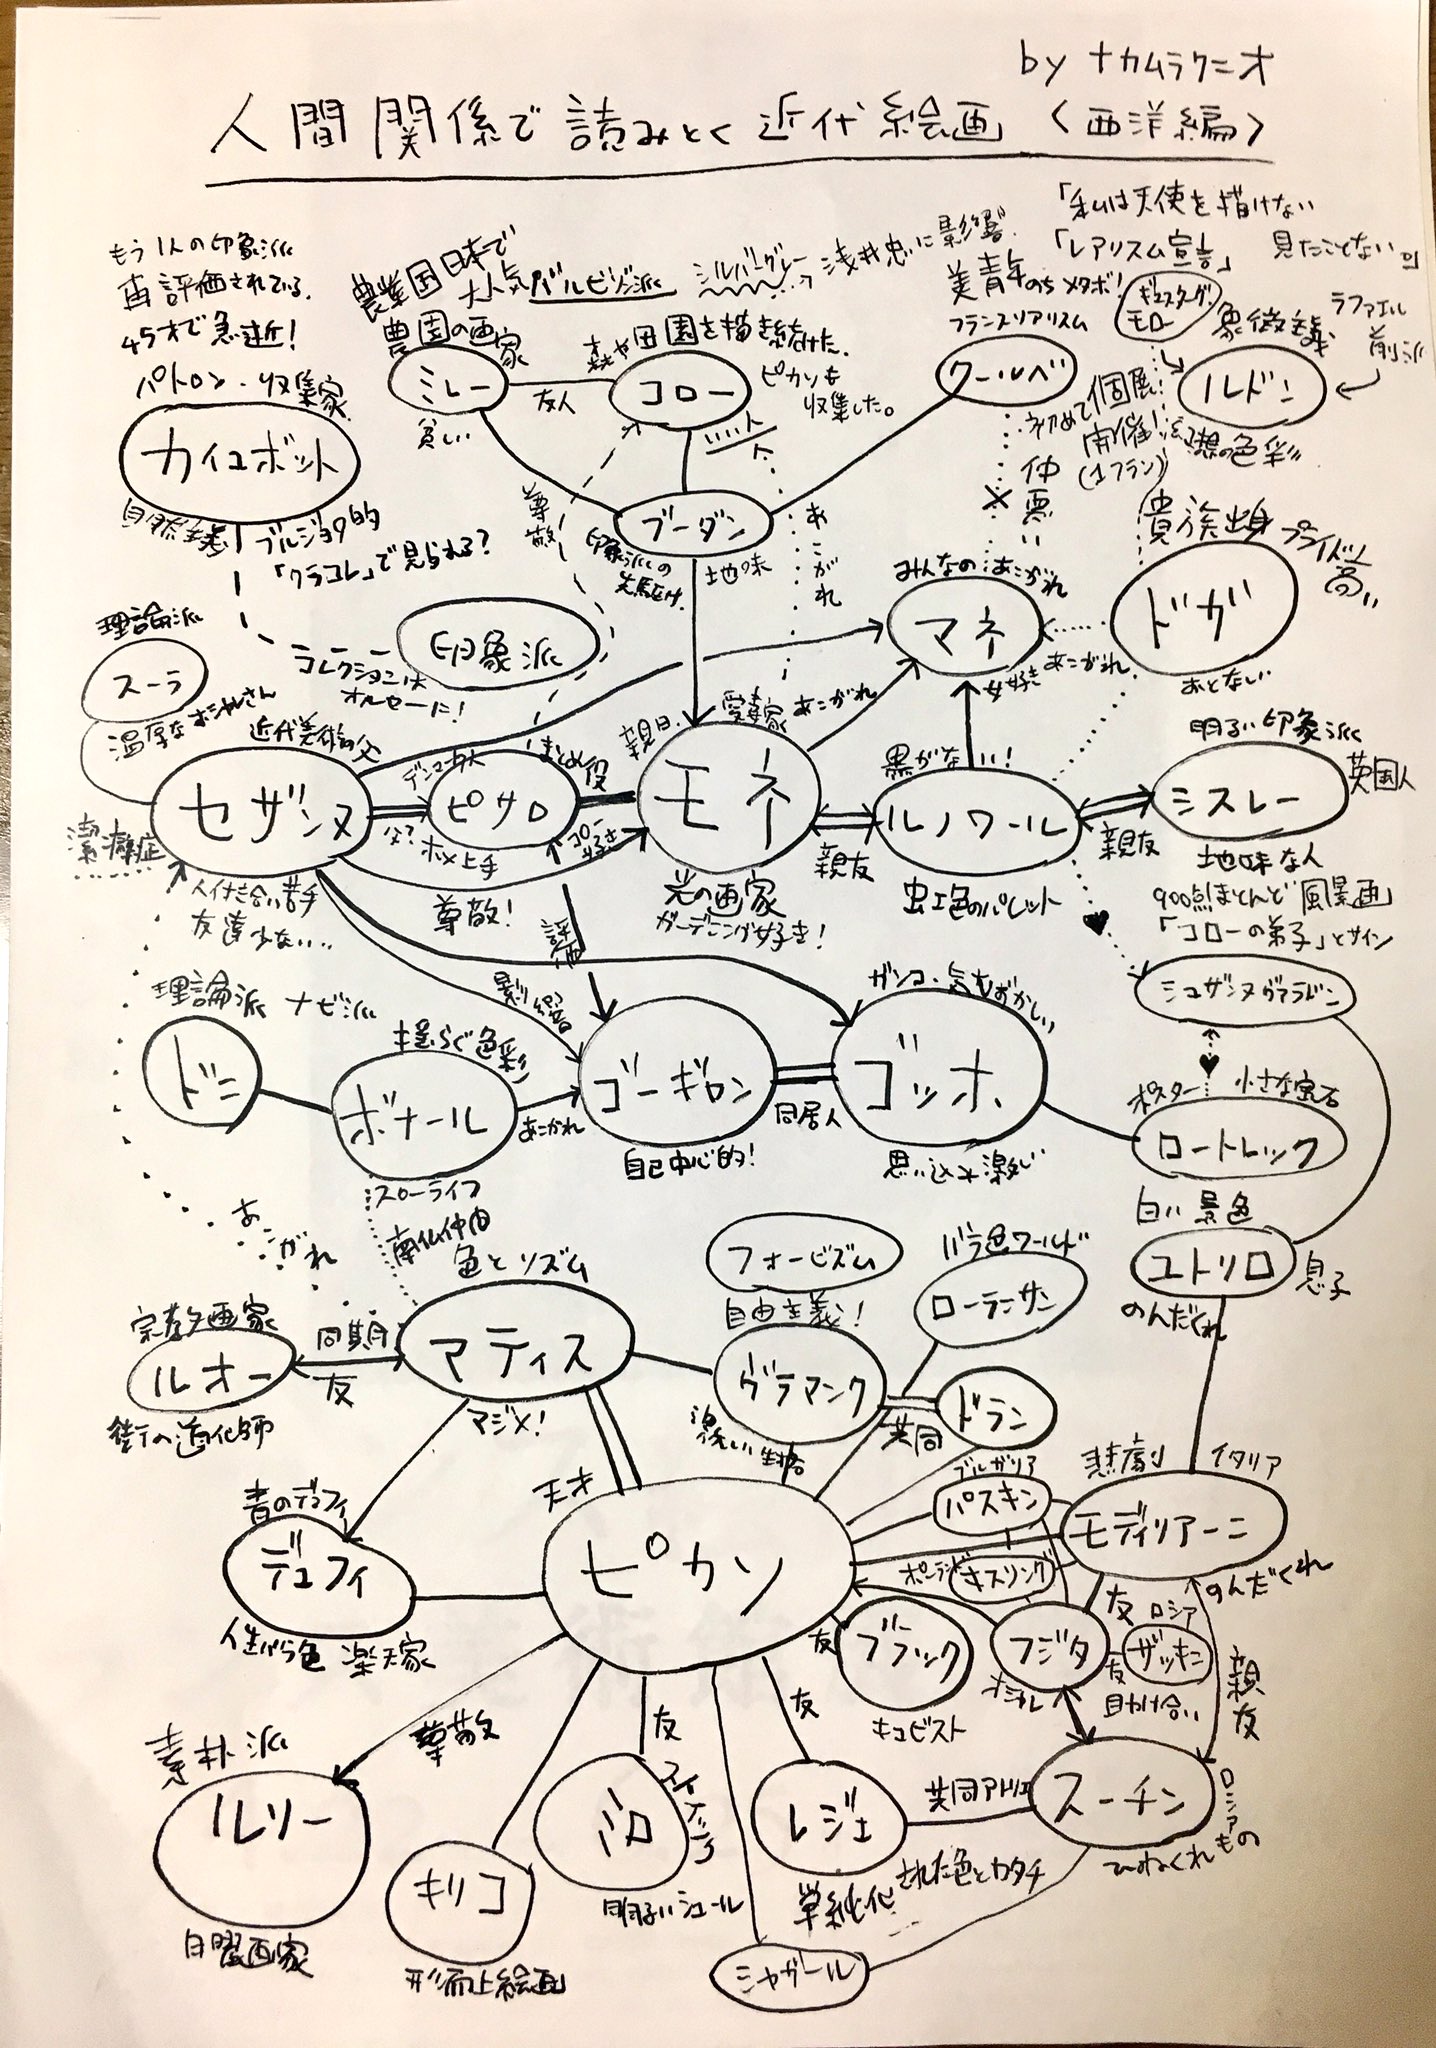 by ナカムラクニオ
人間関係で読みとく近代絵画〈西洋編〉
「私は天使を描けない
見たことないから
「レアリスム宣言」
美青年のちメタボ!
フランスリアリスム
クールベ
ギュスターヴ・
モロー
象徴主義
ラファエル
前派
ルドン
幻想の色彩
初めて個展
開催!
(1フラン)
仲悪い
もう1人の印象派
再評価されている.
45才で急逝!
パトロン・収集家
カイユボット
自然主義
ブルジョワ的
「クラコレ」で見られる?
コレクションは
オルセーに!
農業国日本で
大人気バルビゾン派
シルバーグレー
浅井忠に影響.
農園の画家
ミレー
貧しい
友人
森や田園を描き続けた.
コロー
ピカソも
収集した。
尊敬
ブーダン
地味
印象派の
先駆け.
あこがれ
印象派
みんなのあこがれ
マネ
女好き
あこがれ
貴族出身
プライド高い
ドガ
おとなしい
理論派
スーラ
温厚なオシャレさん
近代美術の父
セザンヌ
潔癖症
人付き合い苦手
友達少ない..
デンマーク人
まとめ役
ピサロ
父?
ホメ上手
コロー
好き
尊敬!
評価
影響
親日.
愛妻家
あこがれ
モネ
光の画家
ガーデニング好き!
親友
黒がない!
ルノワール
虹色のパレット
親友
明るい印象派
シスレー
英国人
地味な人
900点ほとんど風景画
「コローの弟子」とサイン
シュザンヌヴァラドン
理論派 ナビ派
ドニ
揺らぐ色彩
ボナール
スローライフ
南仏仲間
あこがれ
ゴーギャン
自己中心的!
同居人
ガンコ・気むずかしい
ゴッホ
思い込み激しい
ポスター
小さな宝石
ロートレック
白い景色
ユトリロ
息子
のんだくれ
あこがれ
宗教画家
ルオー
街の道化師
同期
友
色とリズム
マティス
マジメ!
フォービズム
自由主義!
ヴラマンク
激しい性格
バラ色ワールド
ローランサン
共同
ドラン
青のデュフィ
デュフィ
人生バラ色 楽天家
天才
ピカソ
ブルガリア
パスキン
ポーランド
キスリング
悲劇
イタリア
モディリアーニ
のんだくれ
友
ブラック
キュビスト
フジタ
オシャレ
友
ロシア
ザッキン
友
助け合い
親友
素朴派
ルソー
日曜画家
尊敬
キリコ
形而上絵画
友
ミロ
明るいシュール
友
レジェ
単純化された色とカタチ
共同アトリエ
スーチン
ロシア
ひねくれもの
シャガール